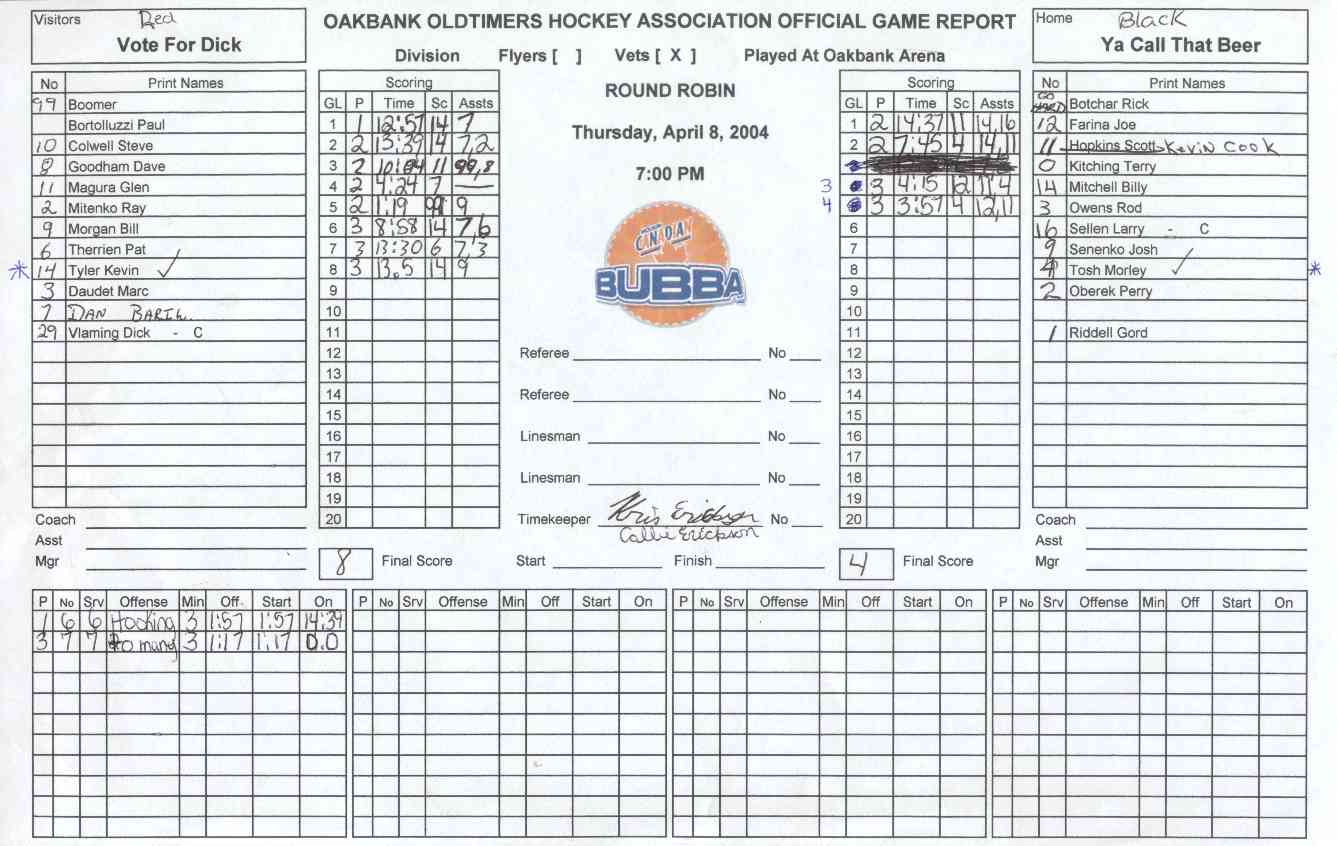 Visitors Red
Vote For Dick
OAKBANK OLDTIMERS HOCKEY ASSOCIATION OFFICIAL GAME REPORT
Division Flyers [ ] Vets [ X ] Played At Oakbank Arena
Home Black
Ya Call That Beer
No Print Names
99 Boomer
Bortoluzzi Paul
10 Colwell Steve
8 Goodham Dave
11 Magura Glen
2 Mitenko Ray
9 Morgan Bill
6 Therrien Pat
* 14 Tyler Kevin ✓
3 Daudet Marc
7 DAN BARIL
29 Vlaming Dick - C
Coach
Asst
Mgr
Scoring
GL P Time Sc Assts
1 1 12:57 14 7
2 2 13:39 14 7,2
3 2 10:04 11 99,8
4 2 4:24 7 —
5 2 1:19 99 9
6 3 8:58 14 7,6
7 3 13:30 6 7,3
8 3 13.5 14 9
9
10
11
12
13
14
15
16
17
18
19
20
8 Final Score
ROUND ROBIN
Thursday, April 8, 2004
7:00 PM
CANADA
BUBBA
Referee No
Referee No
Linesman No
Linesman No
Timekeeper Kris Erickson No
Callie Erickson
Start Finish
Scoring
GL P Time Sc Assts
1 2 14:37 11 14,16
2 2 7:45 4 14,11
3 3 4:15 12 11,4
4 3 3:57 4 12,11
6
7
8
9
10
11
12
13
14
15
16
17
18
19
20
4 Final Score
No Print Names
Botchar Rick
12 Farina Joe
11 Hopkins Scott Kevin Cook
0 Kitching Terry
14 Mitchell Billy
3 Owens Rod
16 Sellen Larry - C
9 Senenko Josh
4 Tosh Morley ✓ *
2 Oberek Perry
1 Riddell Gord
Coach
Asst
Mgr
P No Srv Offense Min Off Start On
1 6 6 Hooking 3 1:57 1:57 14:39
3 7 7 too many 3 1:17 1:17 0.0
P No Srv Offense Min Off Start On
P No Srv Offense Min Off Start On
P No Srv Offense Min Off Start On